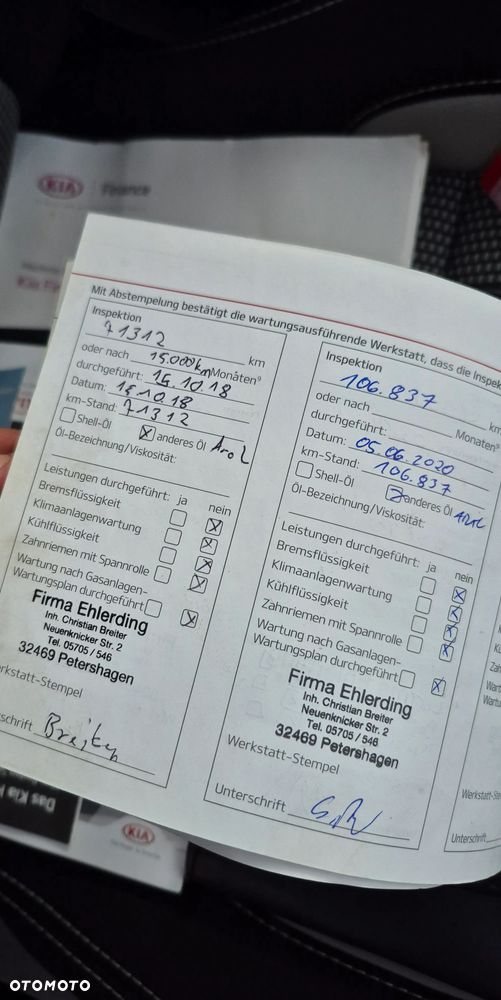 KIA Finance
Mit Abstempelung bestätigt die wartungsausführende Werkstatt, dass die Inspek
Inspektion
71312 km
oder nach 15.000km Monaten⁹
durchgeführt: 15.10.18
Datum: 15.10.18
km-Stand: 71312
Shell-Öl ☒ anderes Öl Arol
Öl-Bezeichnung/Viskosität:
Leistungen durchgeführt: ja nein
Bremsflüssigkeit
Klimaanlagenwartung
Kühlflüssigkeit
Zahnriemen mit Spannrolle
Wartung nach Gasanlagen-
Wartungsplan durchgeführt
Firma Ehlerding
Inh. Christian Breiter
Neuenknicker Str. 2
Tel. 05705 / 546
32469 Petershagen
rkstatt-Stempel
schrift Breiter
Inspektion
106.837 km
oder nach Monaten⁹
durchgeführt:
Datum: 05.06.2020
km-Stand: 106.837
Shell-Öl ☒ anderes Öl
Öl-Bezeichnung/Viskosität:
Leistungen durchgeführt: ja nein
Bremsflüssigkeit
Klimaanlagenwartung
Kühlflüssigkeit
Zahnriemen mit Spannrolle
Wartung nach Gasanlagen-
Wartungsplan durchgeführt
Firma Ehlerding
Inh. Christian Breiter
Neuenknicker Str. 2
Tel. 05705 / 546
32469 Petershagen
Werkstatt-Stempel
Unterschrift
Werkstatt-Ste
Unterschrift
Das Kia
KIA
OTOMOTO